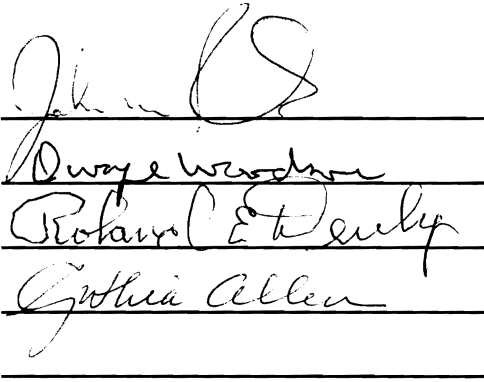 John
Dwayne Woodson
Roland E
Cynthia Allen